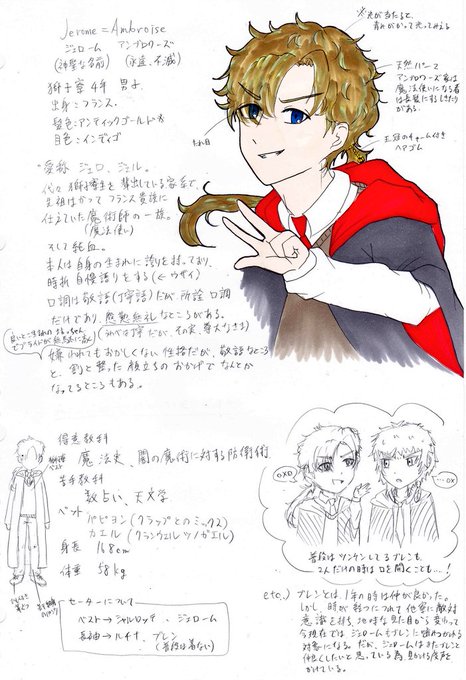 Jerome=Ambroise
ジェローム アンブロワーズ
(神聖な名前) (永遠・不滅)
獅子寮4年 男子
出身:フランス
髪色:アンティックゴールド※
目色:インディゴ
※光が当たると、
青みがかって光ってみえる
天然パーマ
アンブロワーズ家は
魔法使いになる者
は長髪にするしきたり
がある。
王冠のチャーム付き
ヘアゴム
たれ目
愛称 ジェロ、ジェル。
代々獅子寮生を輩出している家系で、
先祖はかつてフランス貴族に
仕えていた魔術師の一族。
(魔法使い)
そして純血。
本人は自身の生まれに誇りを持っており、
時折自慢語りをする(←ウザイ)
口調は敬語(丁寧語)だが、所詮口調
だけであり、慇懃無礼なところがある。
(うわべは丁寧だが、その実、尊大なさま)
嫌われてもおかしくない性格だが、敬語なところ
と、割と整った顔立ちのおかげでなんとか
なってるところもある。
得意教科
魔法史、闇の魔術に対する防衛術
苦手教科
数占い、天文学
ペット パピヨン(クラップとのミックス)
カエル(クランウェルツノガエル)
身長 168cm
体重 58kg
セーターについて
ベスト→シャルロッテ、ジェローム
長袖→ルイナ、ブレン
(普段は着ない)
ベスト
OXO
…OX
普段はツンケンしてるブレンも、
2人だけの時は口を開くことも…!
etc.) ブレンとは、1年の時は仲が良かった。
しかし、時が経つにつれて他寮に敵対
意識を持ち、地味な見た目から変わって
今現在では、ジェロームもブレンに嫌われがちな
対象になる。だが、ジェロームはまたブレンと
仲良くしたいと思っている為、見かける度声を
かけている。